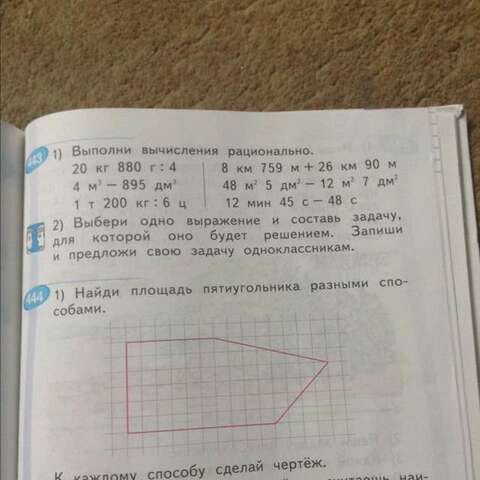 443 1) Выполни вычисления рационально.
20 кг 880 г : 4 8 км 759 м + 26 км 90 м
4 м³ − 895 дм³ 48 м² 5 дм² − 12 м² 7 дм²
1 т 200 кг : 6 ц 12 мин 45 с − 48 с
2) Выбери одно выражение и составь задачу,
для которой оно будет решением. Запиши
и предложи свою задачу одноклассникам.
444 1) Найди площадь пятиугольника разными спо-
собами.
К каждому способу сделай чертёж.